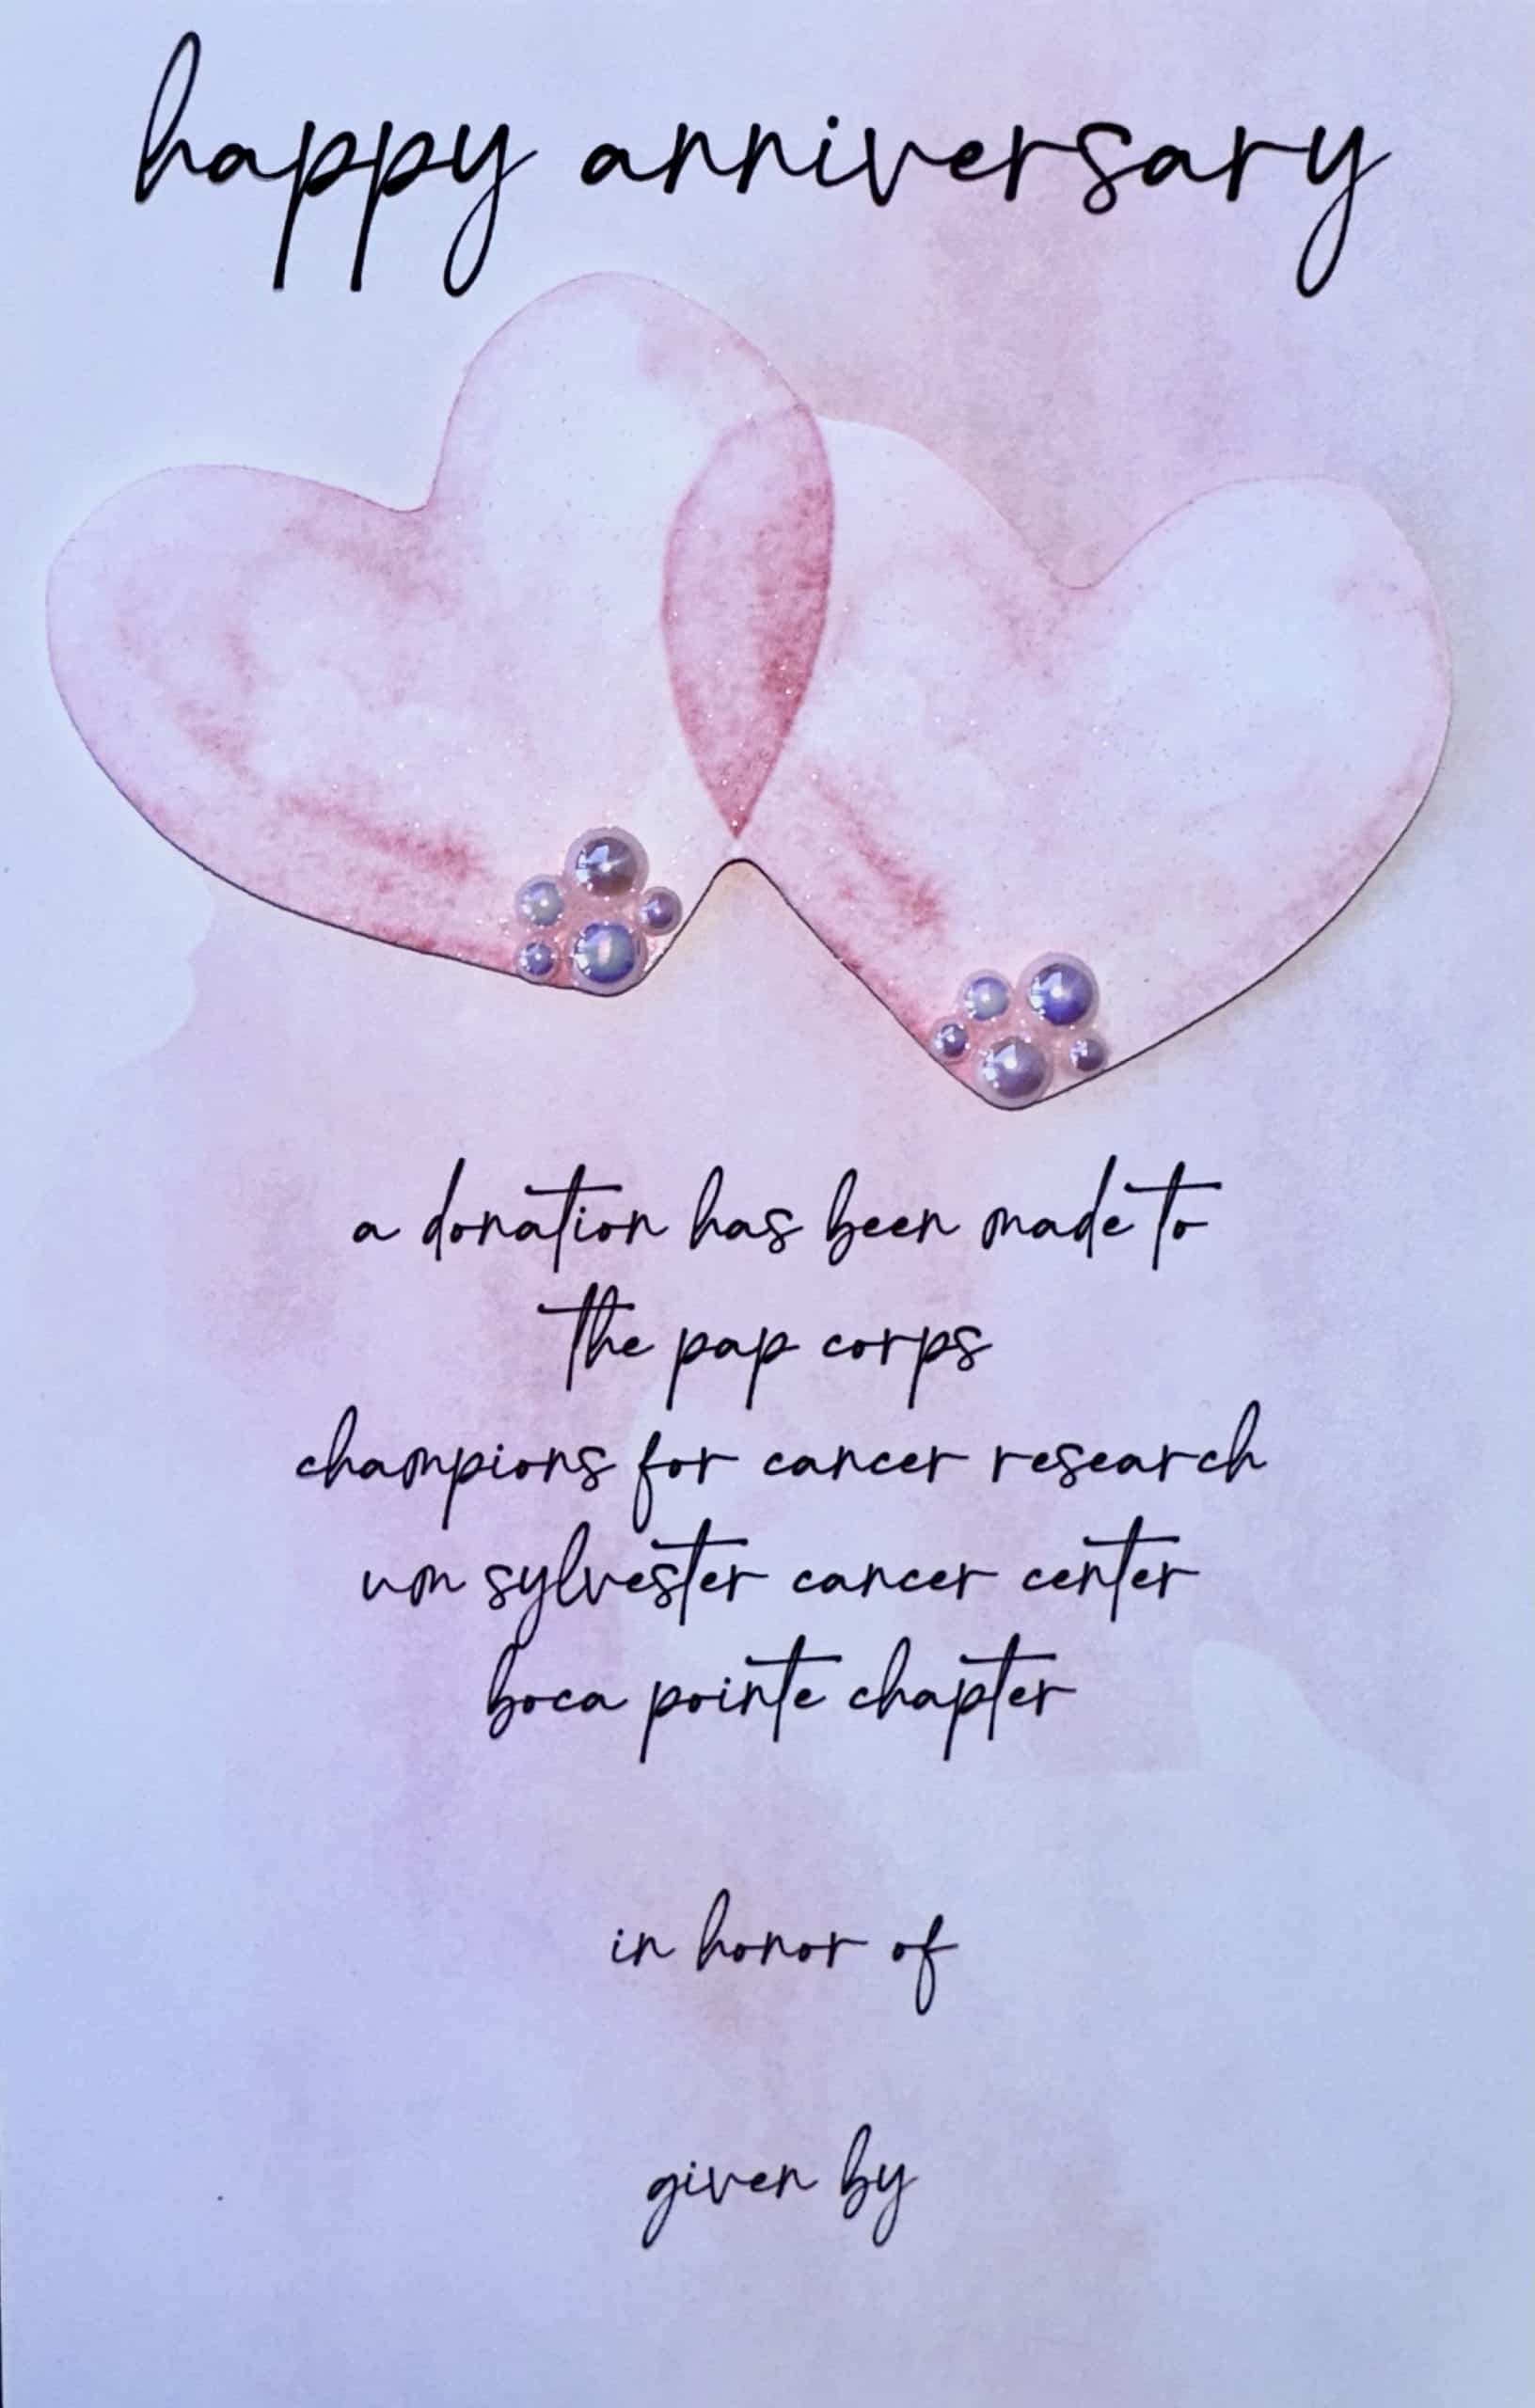 happy anniversary
a donation has been made to
the pap corps
champions for cancer research
um sylvester cancer center
boca pointe chapter
in honor of
given by